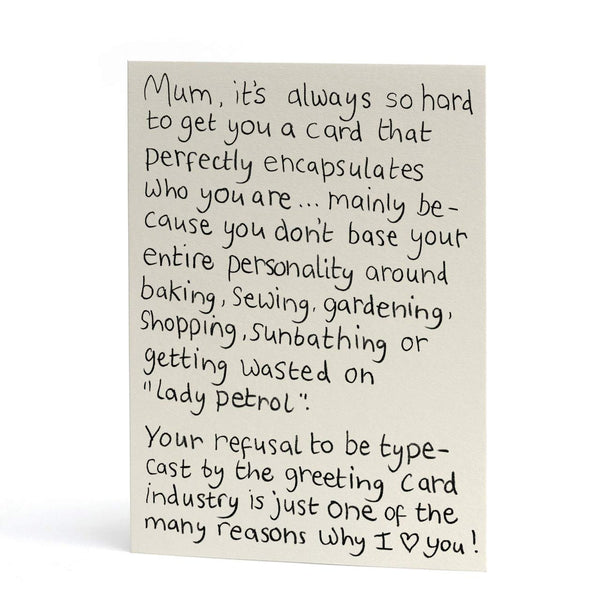 Mum, it's always so hard
to get you a card that
perfectly encapsulates
who you are... mainly be-
cause you don't base your
entire personality around
baking, sewing, gardening,
shopping, sunbathing or
getting wasted on
"lady petrol".
Your refusal to be type-
cast by the greeting card
industry is just one of the
many reasons why I ♡ you!